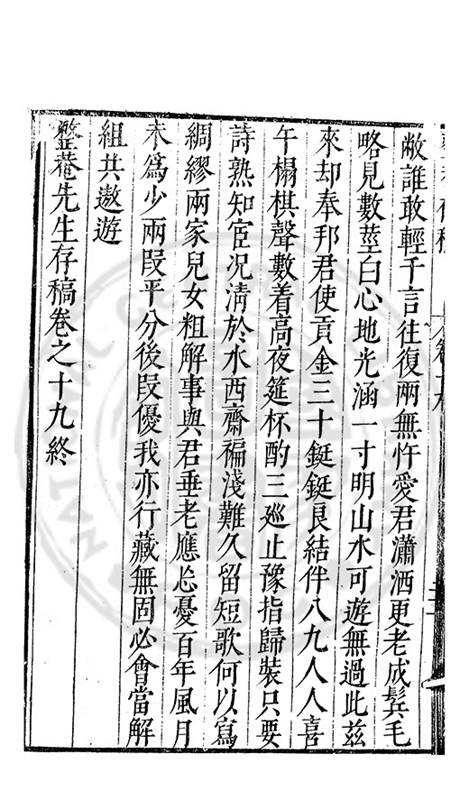 敝誰敢輕千言往復兩無忤愛君瀟洒更老成鬂毛
略見數莖白心地光涵一寸明山水可遊無過此茲
來却奉邦君使貢金三十鋌鋌艮結伴八九人人喜
午榻棋聲數着高夜筵杯酌三廵止豫指歸裝只要
詩熟知宦况淸於水西齋褊淺難久留短歌何以寫
綢繆兩家兒女粗解事與君垂老應忘憂百年風月
未爲少兩段平分後段優我亦行藏無固必會當解
組共遨遊
整菴先生存稿卷之十九終